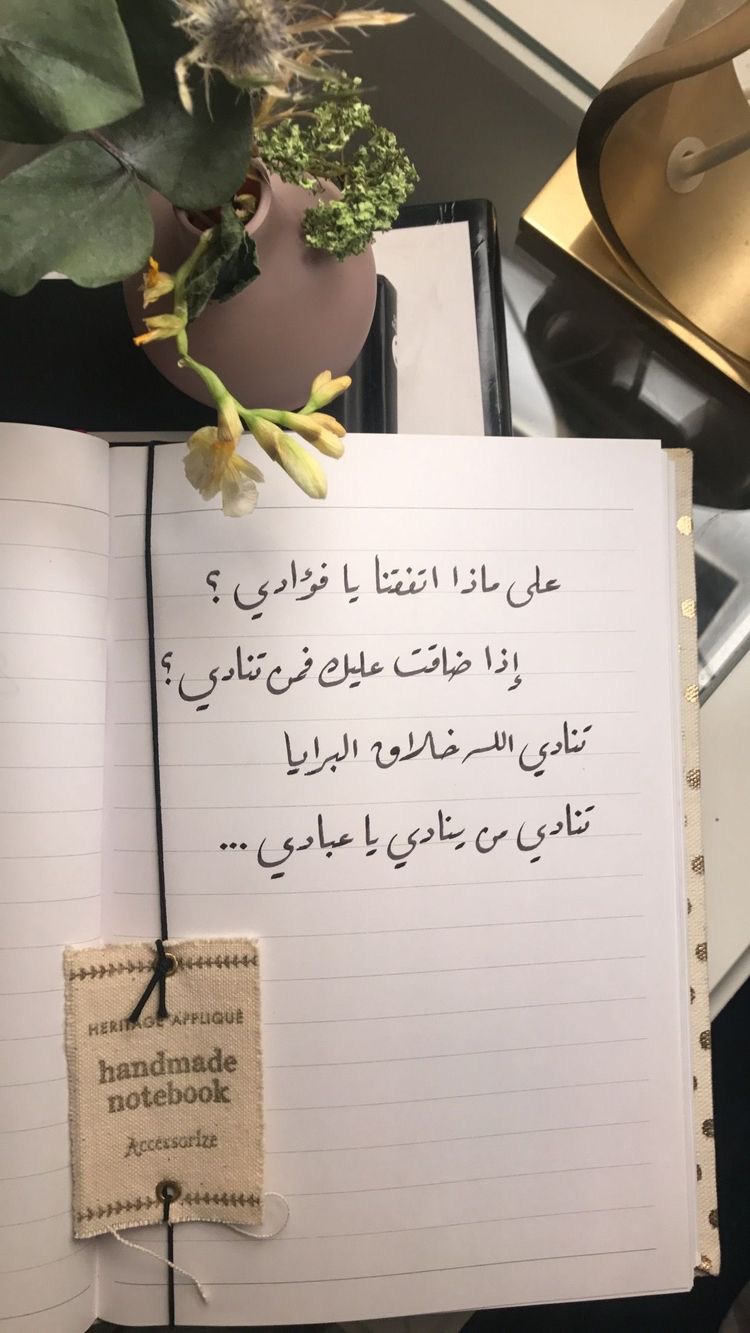 على ماذا اتفقنا يا فؤادي ؟
إذا ضاقت عليك فمن تنادي ؟
تنادي الله خلاق البرايا
تنادي من ينادي يا عبادي ...
HERITAGE APPLIQUÉ
handmade
notebook
Accessorize